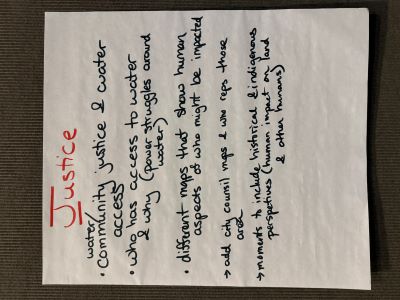 Justice
water/
• community justice & water
access
• who has access to water
& why (power struggles around
water)
• different maps that show human
aspects of who might be impacted
→ add city counsil maps & who reps those
area
→ moments to include historical & indigenous
perspetives (human impact on land
& other humans)